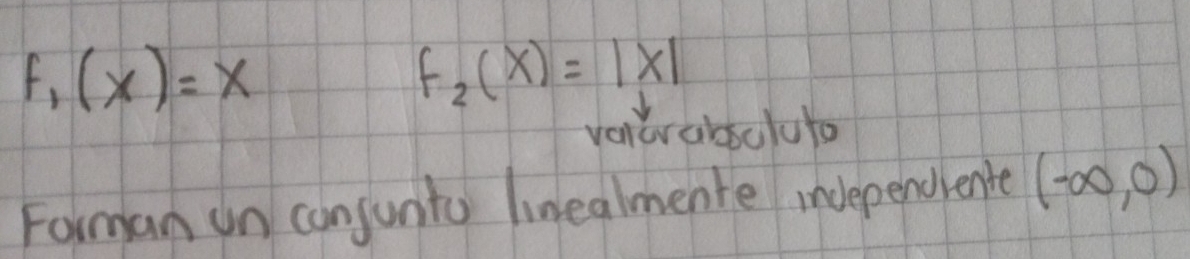 f₁(x)=x f₂(x)=|x|
valor absoluto
Forman un conjunto linealmente independiente (-∞,0)